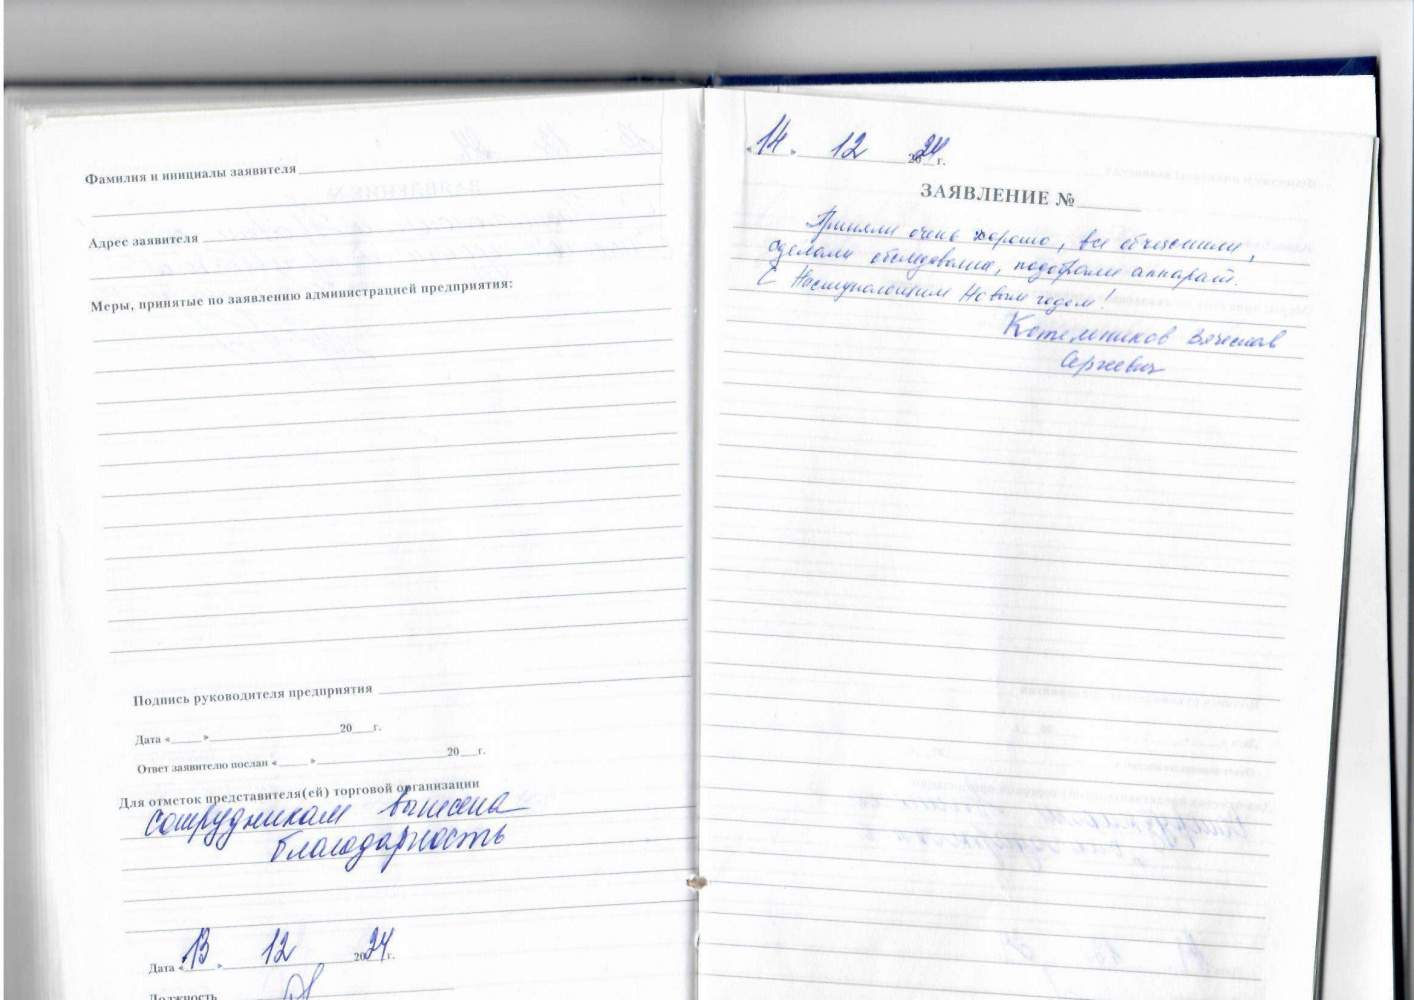 Фамилия и инициалы заявителя
Адрес заявителя
Меры, принятые по заявлению администрацией предприятия:
Подпись руководителя предприятия
Дата «____»____________20___г.
Ответ заявителю послан «____»____________20___г.
Для отметок представителя(ей) торговой организации
сотрудникам вынесена
благодарность
Дата «13» 12 2024г.
Должность
«14» 12 2024г.
ЗАЯВЛЕНИЕ №
Приняли очень хорошо, все объяснили,
сделали обследование, подобрали аппарат.
С Наступающим Новым годом!
Котельников Вячеслав
Сергеевич